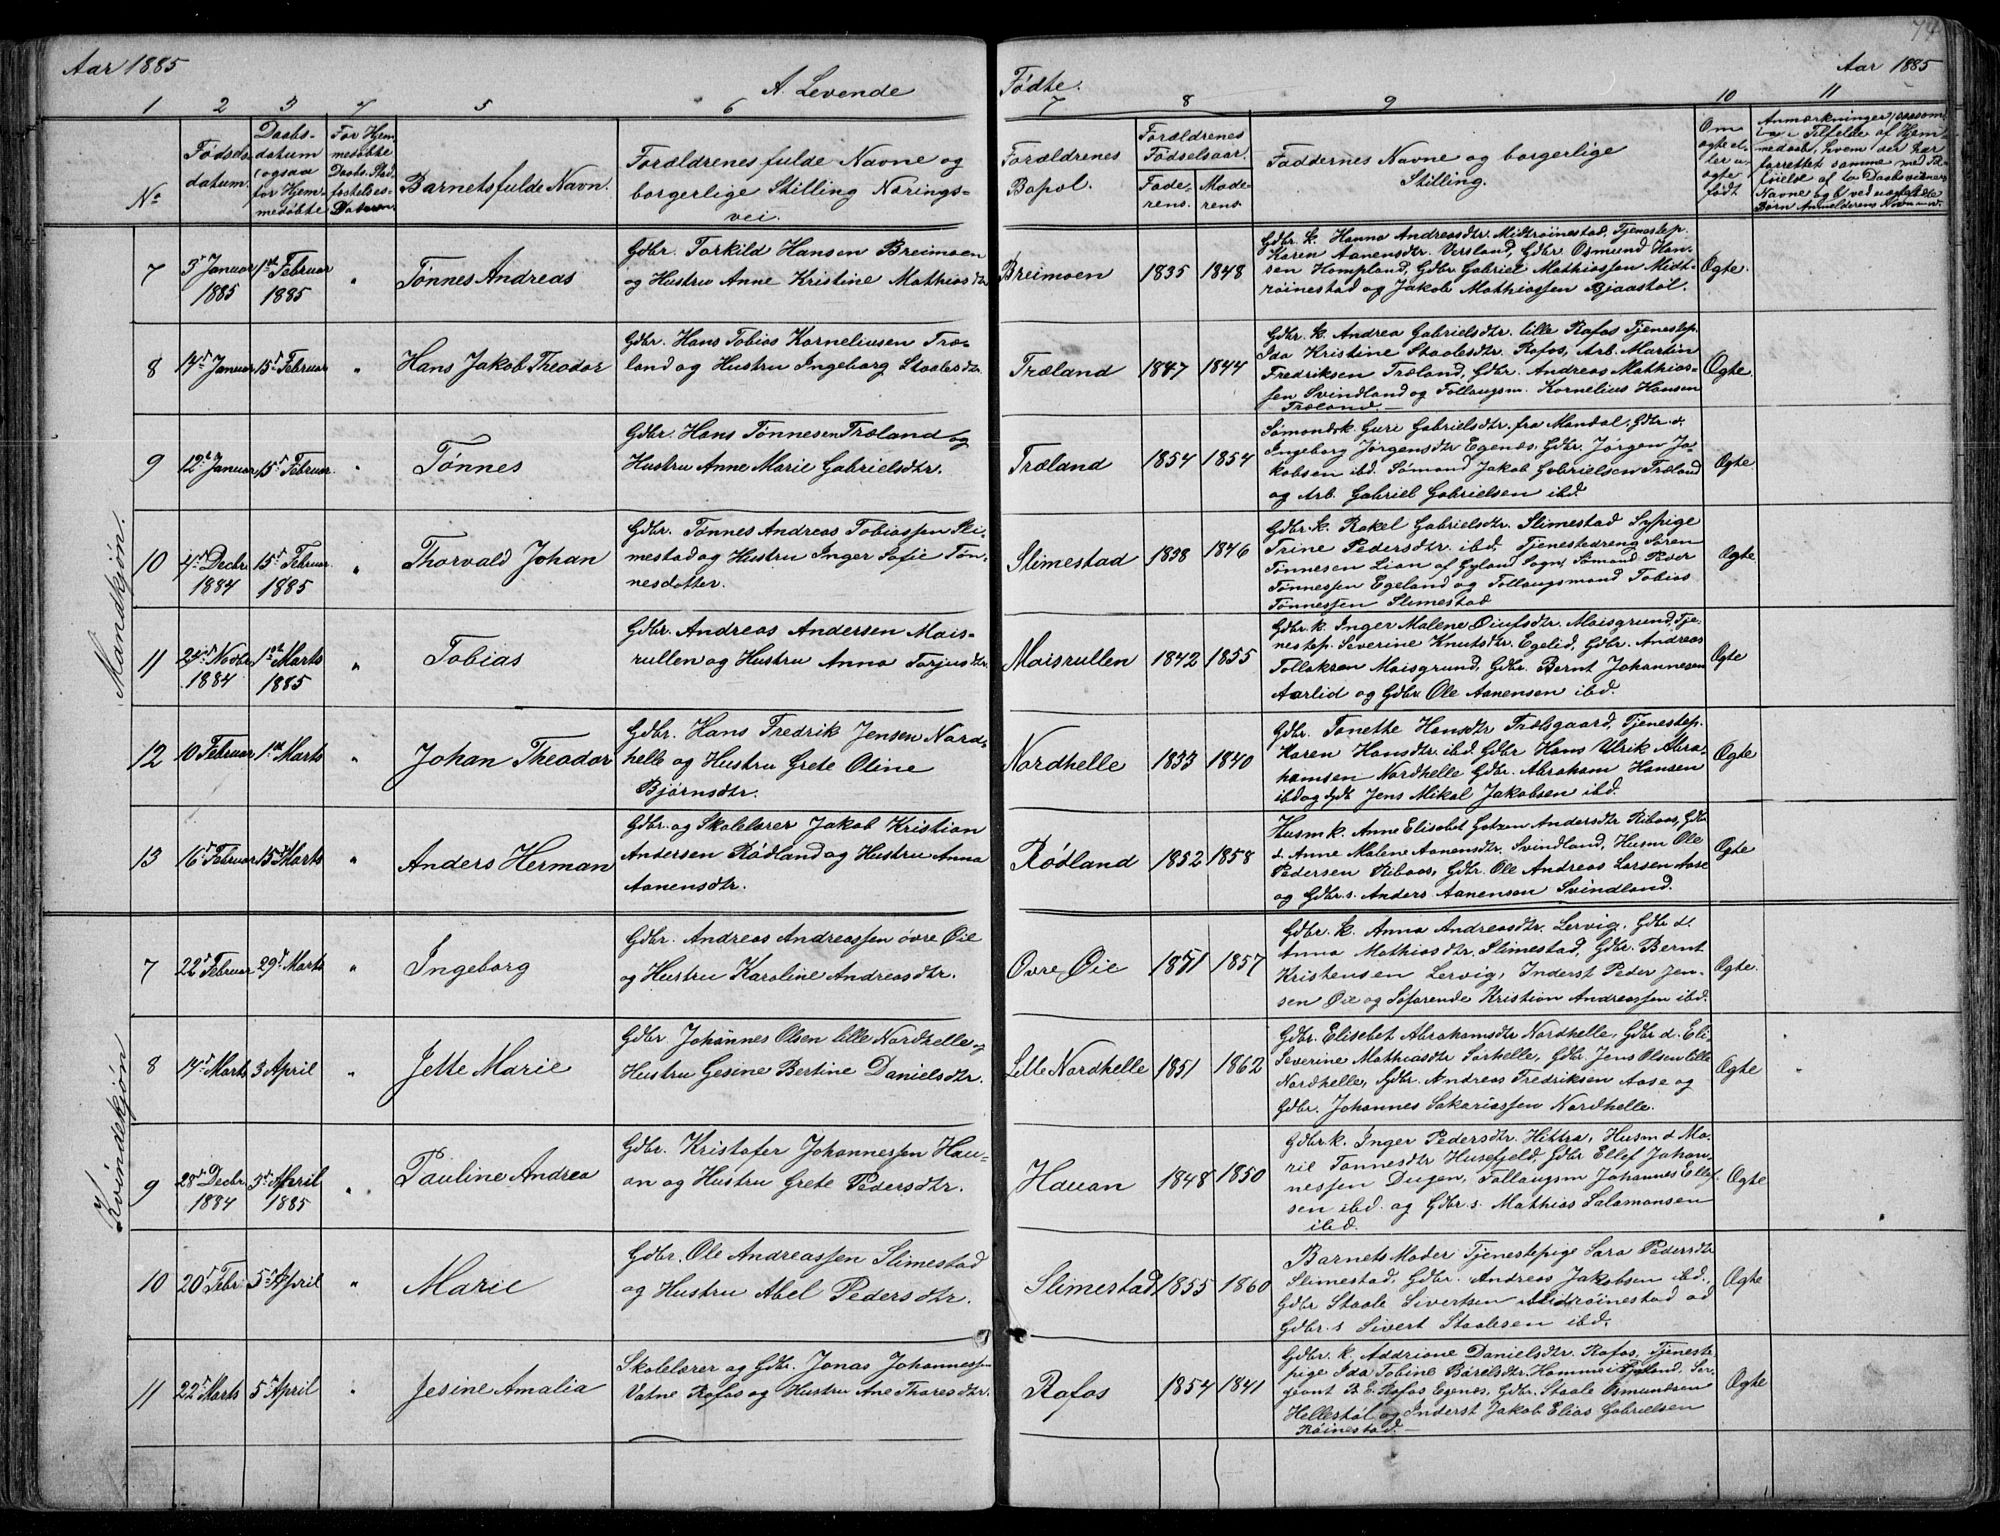 74
Aar 1885
A. Levende
Fødte.
Aar 1885
1 2 3 4 5 6 7 8 9 10 11
No
Fødsels
datum.
Daabs-
datum
(ogsaa
for Hjem-
medøbte
For Hjem-
medøbte
Daabs Stad-
festelses-
Datum.
Barnets fulde Navn.
Forældrenes fulde Navne og
borgerlige Stilling Nærings-
vei.
Forældrenes
Bopæl.
Forældrenes
Fødselsaar.
Fade-
rens.
Mode-
rens.
Faddernes Navne og borgerlige
Stilling.
Om
ægte el-
ler u-
ægte
født
Anmærkninger, saasom
i Tilfælde af Hjem-
medaab, hvem der har
forrettet samme med Til-
føielse af to Daabsvidners
Navne og ved uægtefødte
Børn Anmelderens Navn
Mandkjøn.
7
3d Januar
1885
1ste Februar
1885
"
Tønnes Andreas
Gdbr. Torkild Hansen Breimoen
og Hustru Anne Kristine Mathiasdtr
Breimoen
1835
1848
Gdbr. k. Hanna Andreasdtr. Midtrøinestad, Tjenestep.
Karen Aanensdtr. Versland, Gdbr. Osmund Han-
sen Hompland, Gdbr. Gabriel Mathiassen Midt-
røinestad og Jakob Mathiassen Bjaastøl.
Ægte.
8
14d Januar
15d Februar
"
Hans Jakob Theodor
Gdbr. Hans Tobias Korneliusen Træ-
land og Hustru Ingeborg Staalesdtr.
Træland
1847
1844
Gdbr. k. Andrea Gabrielsdtr. lille Rafos Tjenestep.
Ida Kristine Staalesdtr. Rafos, Arb. Martin
Fredriksen Træland, Gdbr. Andreas Mathias-
sen Svindland og Tollaugsm. Kornelius Hansen
Træland.—
Ægte
9
12te Januar
15d Februar
"
Tønnes
Gdbr. Hans Tønnesen Træland og
Hustru Anne Marie Gabrielsdtr.
Træland
1854
1854
Sømandsk. Guri Gabrielsdtr. fra Mandal, Gdbr. d.
Ingeborg Jørgensdtr Egenæs, Gdbr. Jørgen Ja-
kobsen ibd. Sømand Jakob Gabrielsen Træland
og Arb. Gabriel Gabrielsen ibd.
Ægte
10
4d Decbr.
1884
15d Februar
1885
"
Thorvald Johan
Gdbr. Tønnes Andreas Tobiassen Sli-
mestad og Hustru Inger Sofie Tøn-
nesdotter.
Slimestad
1838
1846
Gdbr. k. Rakel Gabrielsdtr. Slimestad Sypige
Trine Pedersdtr. ibd, Tjenestedreng Søren
Tønnesen Lian af Gyland Sogn, Sømand Peder
Tønnessen Egeland og Tollaugsmand Tobias
Tønnessen Slimestad
Ægte
11
24d Novbr.
1884
1ste Marts
1885
"
Tobias
Gdbr. Andreas Andersen Mois-
rullen og Hustru Anna Tarjusdtr.
Moisrullen
1842
1855
Gdbr. k. Inger Malene Øiufsdtr. Moisgrund, Tje-
nestep. Severine Knutsdtr. Egelid, Gdbr. Andreas
Tollaksen Moisgrund, Gdbr. Bernt Johannesen
Aarlid og Gdbr. Ole Aanensen ibd.
Ægte
12
10 Februar
1ste Marts
"
Johan Theodor
Gdbr. Hans Fredrik Jensen Nord-
helle og Hustru Grete Oline
Bjørnsdtr.
Nordhelle
1833
1840
Gdbr. Tonette Hansdtr Trælsgaard, Tjenestep.
Karen Hansdtr. ibd. Gdbr Hans Ulrik Abra-
hamsen Nordhelle Gdbr. Abraham Hansen
ibd og Jens Mikal Jakobsen ibd.
Ægte
13
16d Februar
15d Marts
"
Anders Herman
Gdbr. og Skolelærer Jakob Kristian
Andersen Rødland og Hustru Anna
Aanensdtr.
Rødland
1852
1858
Husm k. Anne Elisabet Andersdtr Riboos, Gdbr
d. Anne Malene Aanensdtr. Svindland, Husm Ole
Pedersen Riboos, Gdbr. Ole Andreas Larsen Aase
og Gdbr. s. Anders Aanensen Svindland.
Ægte
Kvindekjøn
7
22d Februar
29d Marts
"
Ingeborg
Gdbr. Andreas Andreassen øvre Øie
og Hustru Karoline Andreasdtr.
Øvre Øie
1851
1857
Gdbr. k. Anna Andreasdtr. Lervig, Gdbr d.
Anna Mathiasdtr. Slimestad, Gdbr. Bernt
Kristensen Lervig, Inderst Peder Jen-
sen Øie og Søfarende Kristian Andreassen ibd.
Ægte.
8
14d Marts
3 April
"
Jette Marie
Gdbr. Johannes Olsen lille Nordhelle og
Hustru Gesine Bertine Danielsdtr.
Lille Nordhelle
1851
1862
Gdbr. Elisebet Abrahamsdtr Nordhelle, Gdbr d. Eli
Severine Mathiasdtr Sørhelle, Gdbr. Jens Olsen lille
Nordhelle, Gdbr. Andreas Fredriksen Aase og
Gdbr. Johannes Sakariassen Nordhelle.
Ægte
9
28d Decbr.
1884
5d April
1885
"
Pauline Andrea
Gdbr. Kristofer Johannessen Hau-
an og Hustru Grete Pedersdtr.
Hauan
1848
1850
Gdbr. k. Inger Pedersdtr. Hittra, Husm d Ma-
ril Tønnesdtr Husefjeld, Gdbr Ellef Johan-
nessen Dugen, Tollaugsm Johannes Ellef-
sen ibd. og Gdbr. s. Mathias Salamonsen
ibd.
Ægte
10
20d Febr.
5d April
"
Marie
Gdbr. Ole Andreassen Slimestad
og Hustru Abel Pedersdtr.
Slimestad
1855
1860
Barnets Moder Tjenestepige Sara Pedersdtr
Slimestad, Gdbr. Andreas Jakobsen ibd.,
Gdbr Staale Sivertsen Midtrøinestad og
Gdbr. s Sivert Staalesen ibd.
Ægte
11
22d Marts
5d April
"
Jesine Amalia
Skolelærer og Gdbr. Jonas Johannessen
Vatne Rafos og Hustru Ane Tharesdtr.
Rafos
1854
1841
Gdbr. k. Addriane Danielsdtr. Rafos, Tjeneste-
pige Ida Tobine Bårelsdtr. Homme i Bjelland. Ser-
geant B. E. Rafos Egenæs, Gdbr. Staale Osmundsen
Hellestøl og Inderst Jakob Elias Gabrielsen
Røinestad.—
Ægte